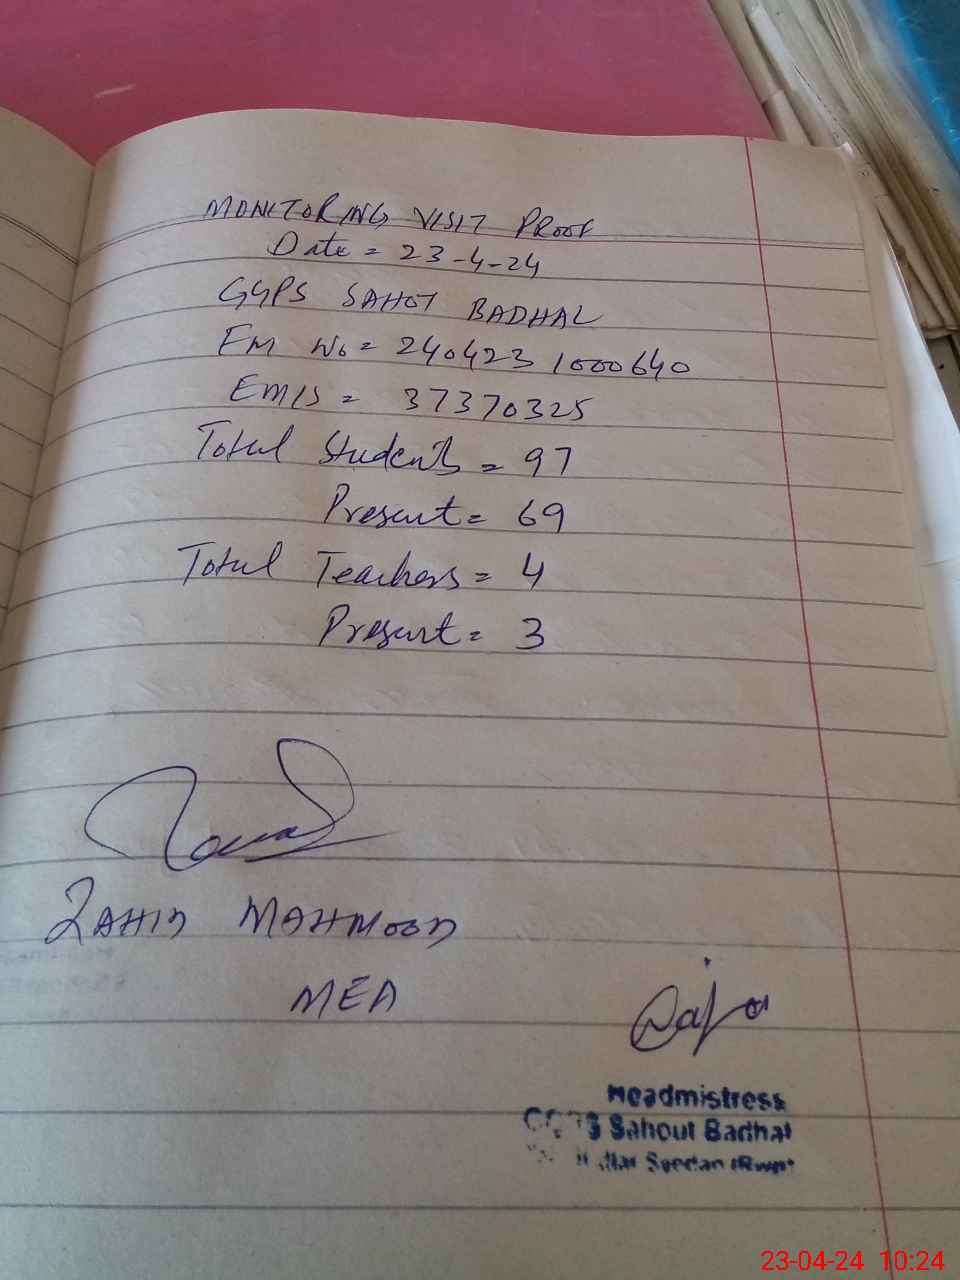 MONITORING VISIT PROOF
Date = 23-4-24
GGPS SAHOT BADHAL
EM No = 240423 1000640
EMIS = 37370325
Total Students = 97
Present = 69
Total Teachers = 4
Present = 3
ZAHID MAHMOOD
MEA
Headmistress
Sahout Badhal
Syedan (Rwp)
23-04-24 10:24